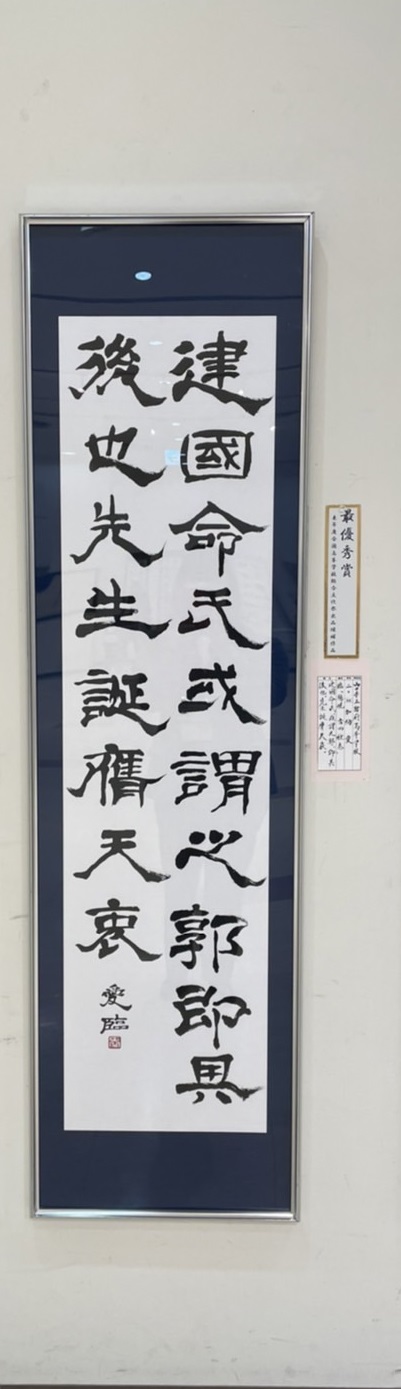 建國命氏或謂之郭即其
後也先生誕膺天衷
愛臨
最優秀賞